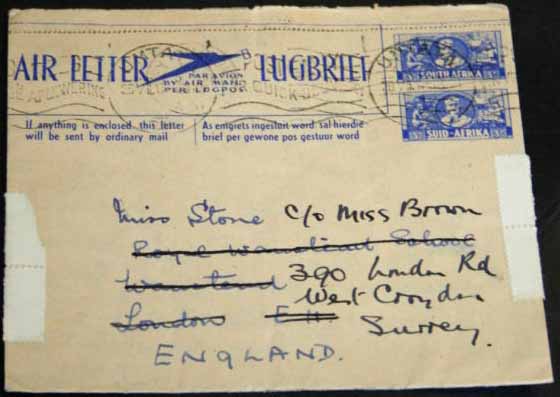 AIR LETTER LUGBRIEF
PAR AVION
BY AIR MAIL
PER LUGPOS
SOUTH AFRIKA
SUID-AFRIKA
If anything is enclosed this letter
will be sent by ordinary mail
As enigiets ingesluit word sal hierdie
brief per gewone pos gestuur word
Miss Stone c/o Miss Brown
Royal Wanstead School
Wanstead 390 London Rd
West Croydon
London E.11. Surrey.
ENGLAND.